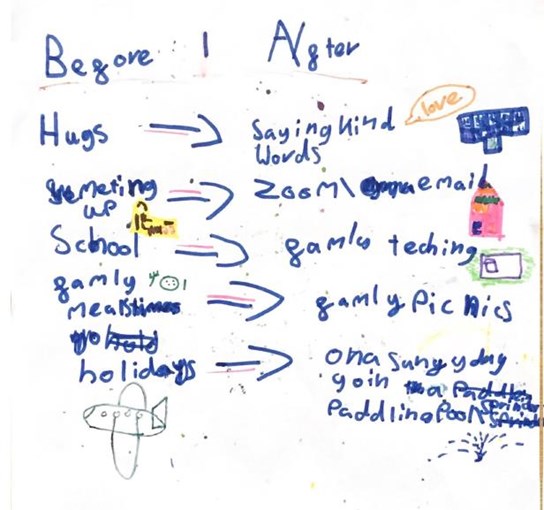 Begore | Agter
Hugs Saying kind love
Words
meting Zoom\ email
up
School gamly teching
gamly
meals gamly Picnics
holidays on a sunyy day
go in
Paddling Pool